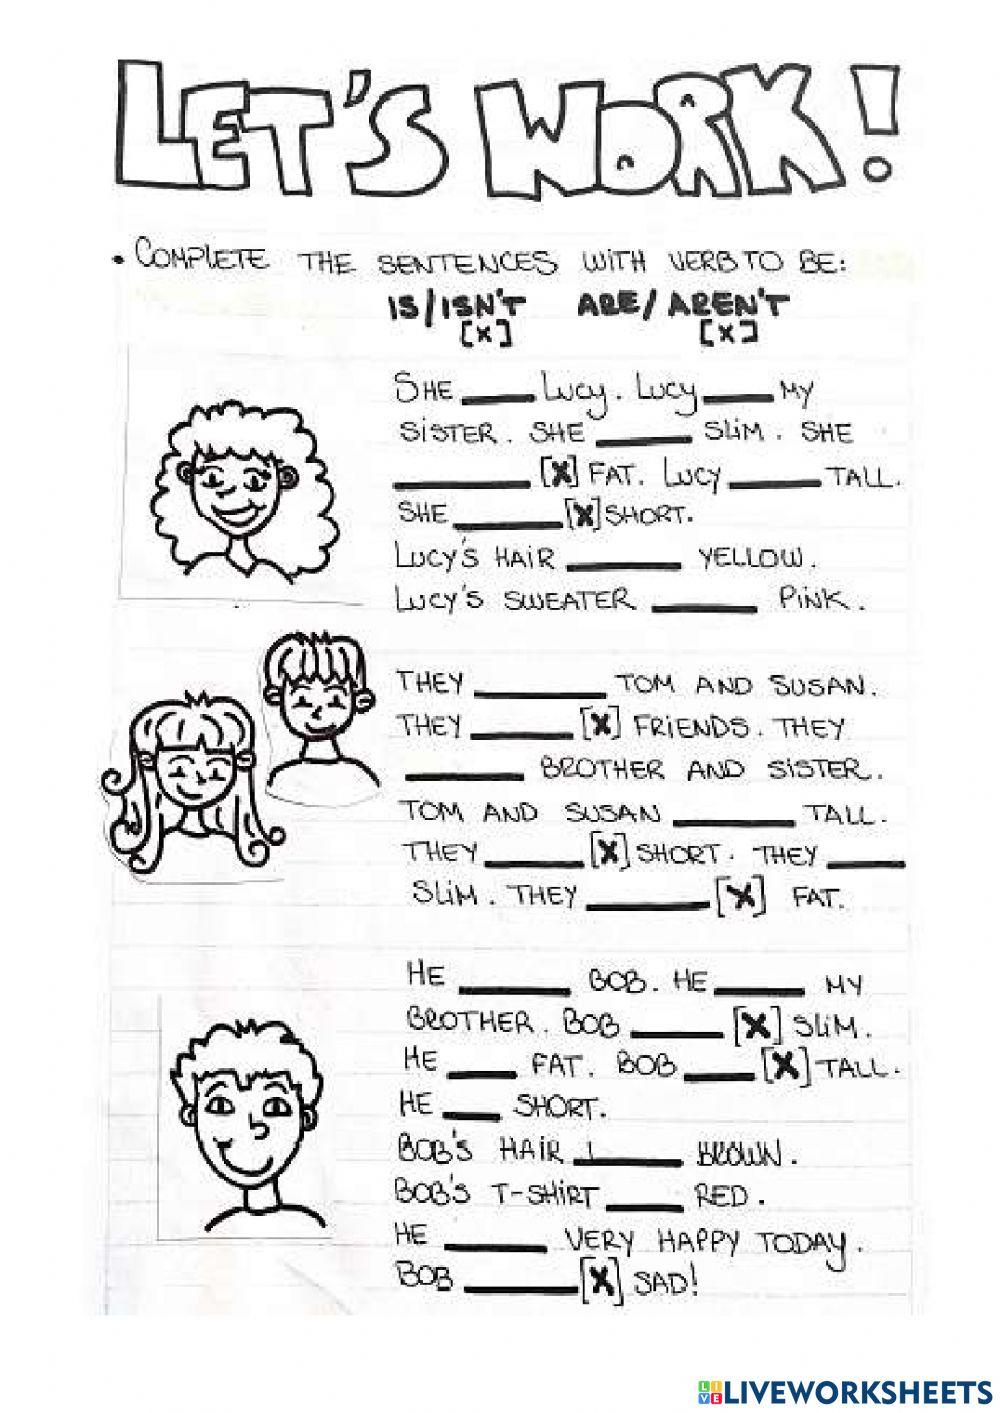 LET'S WORK!
• COMPLETE THE SENTENCES WITH VERB TO BE:
IS/ISN'T ARE/AREN'T
[X] [X]
SHE ____ LUCY. LUCY ____ MY
SISTER. SHE ____ SLIM. SHE
____ [X] FAT. LUCY ____ TALL.
SHE ____ [X] SHORT.
LUCY'S HAIR ____ YELLOW.
LUCY'S SWEATER ____ PINK.
THEY ____ TOM AND SUSAN.
THEY ____ [X] FRIENDS. THEY
____ BROTHER AND SISTER.
TOM AND SUSAN ____ TALL.
THEY ____ [X] SHORT. THEY ____
SLIM. THEY ____ [X] FAT.
HE ____ BOB. HE ____ MY
BROTHER. BOB ____ [X] SLIM.
HE ____ FAT. BOB ____ [X] TALL.
HE ____ SHORT.
BOB'S HAIR ____ BROWN.
BOB'S T-SHIRT ____ RED.
HE ____ VERY HAPPY TODAY.
BOB ____ [X] SAD!
LIVE LIVEWORKSHEETS